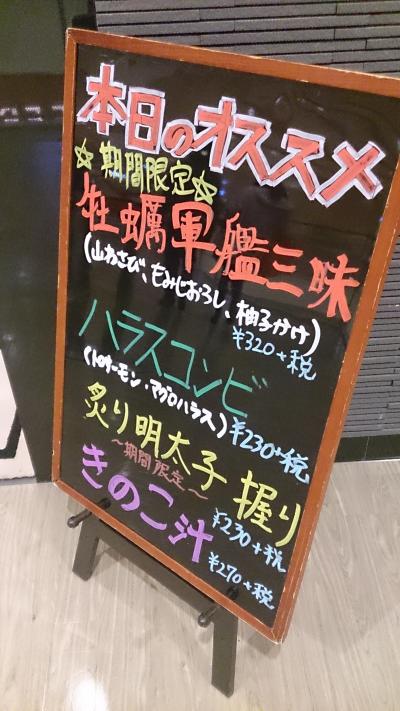 本日のオススメ
☆期間限定☆
牡蠣軍艦三昧
(山わさび、もみじおろし、柚子かけ)
¥320+税
ハラスコンビ
(トロサーモン・マグロハラス) ¥230+税
炙り明太子 握り
¥230+税
~期間限定~
きのこ汁
¥270+税